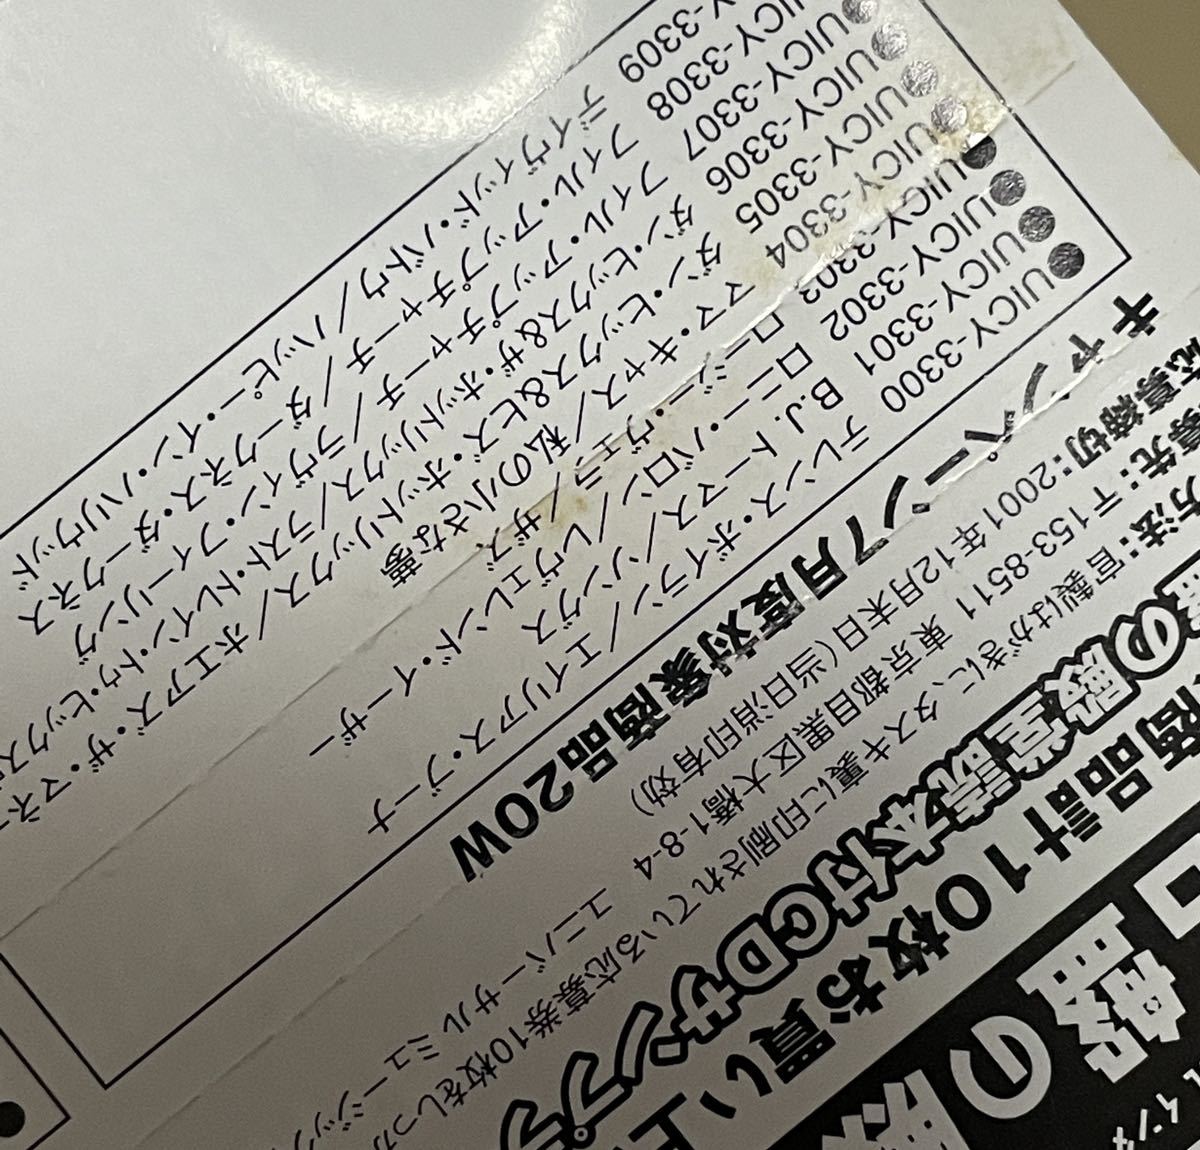 名盤の殿
商品計10枚お買い上
の殿堂読本付CDサンプラ
方法:官製はがきに、タスキ裏に印刷されている応募券10枚をしっか
募先:〒153-8511 東京都目黒区大橋1-8-4 ユニバーサル ミュージック
応募締切:2001年12月末日(当日消印有効)
キャンペーン7月度対象商品20W
●UICY-3300 テレンス・ボイラン/エイリアス・ブーナ
●UICY-3301 B.J.トーマス/ソングス
●UICY-3302 ロニー・バロン/レヴェレンド・イーザー
●UICY-3303 ロージー・ヴェラ/ザズ
●UICY-3304 ママ・キャス/私の小さな夢
●UICY-3305 ダン・ヒックス&ヒズ・ホットリックス/ホエアズ・ザ・マネ
●UICY-3306 ダン・ヒックス&ザ・ホットリックス/ラスト・トレイン・トゥ・ヒックス
●UICY-3307 フィル・アップチャーチ/ラヴィン・フィーリング
UICY-3308 フィル・アップチャーチ/ダークネス・ダークネス
Y-3309 デイヴィッド・バトウ/ハッピー・イン・ハリウッド